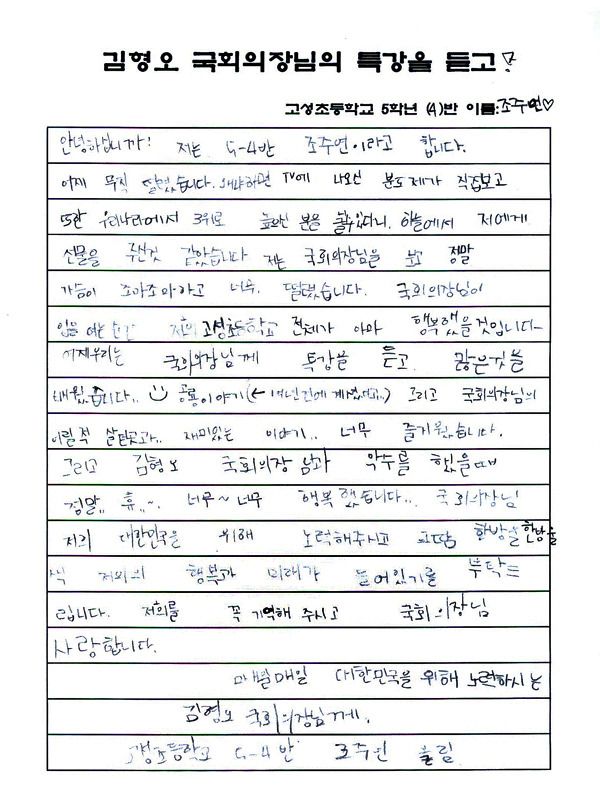 김형오 국회의장님의 특강을 듣고!
고성초등학교 5학년 (4)반 이름:조주연♡
안녕하십니까! 저는 5-4반 조주연이라고 합니다.
어제 무척 떨렸습니다. 왜냐하면 TV에 나오신 분도 제가 직접보고
또한 우리나라에서 3위로 높으신 분을 볼수있다니. 하늘에서 저에게
선물을 주신것 같았습니다 저는 국회의장님을 보고 정말
가슴이 조마조마하고 너무. 떨렸습니다. 국회의장님이
입을 여는 순간 저희 고성초등학교 전체가 아마 행복했을것입니다~
어제우리는 국회의장님께 특강을 듣고. 많은것을
배웠습니다.. 공룡이야기(← 몇년전에 계셨대고..) 그리고 국회의장님의
어릴적 살던곳과.. 재미있는 이야기.. 너무 즐거웠습니다.
그리고 김형오 국회의장 님과 악수를 했을때
정말,, 휴,,~. 너무~너무 행복했습니다.. 국회의장님
저희 대한민국은 위해 노력해주시고 그땀 한방울한방울
씩 저희의 행복과 미래가 들어있기를 부탁드
립니다. 저희를 꼭 기억해 주시고 국회의장님
사랑합니다.
매일매일 대한민국을 위해 노력하시는
김형오 국회의장님께.
고성초등학교 5-4반 조주연 올림